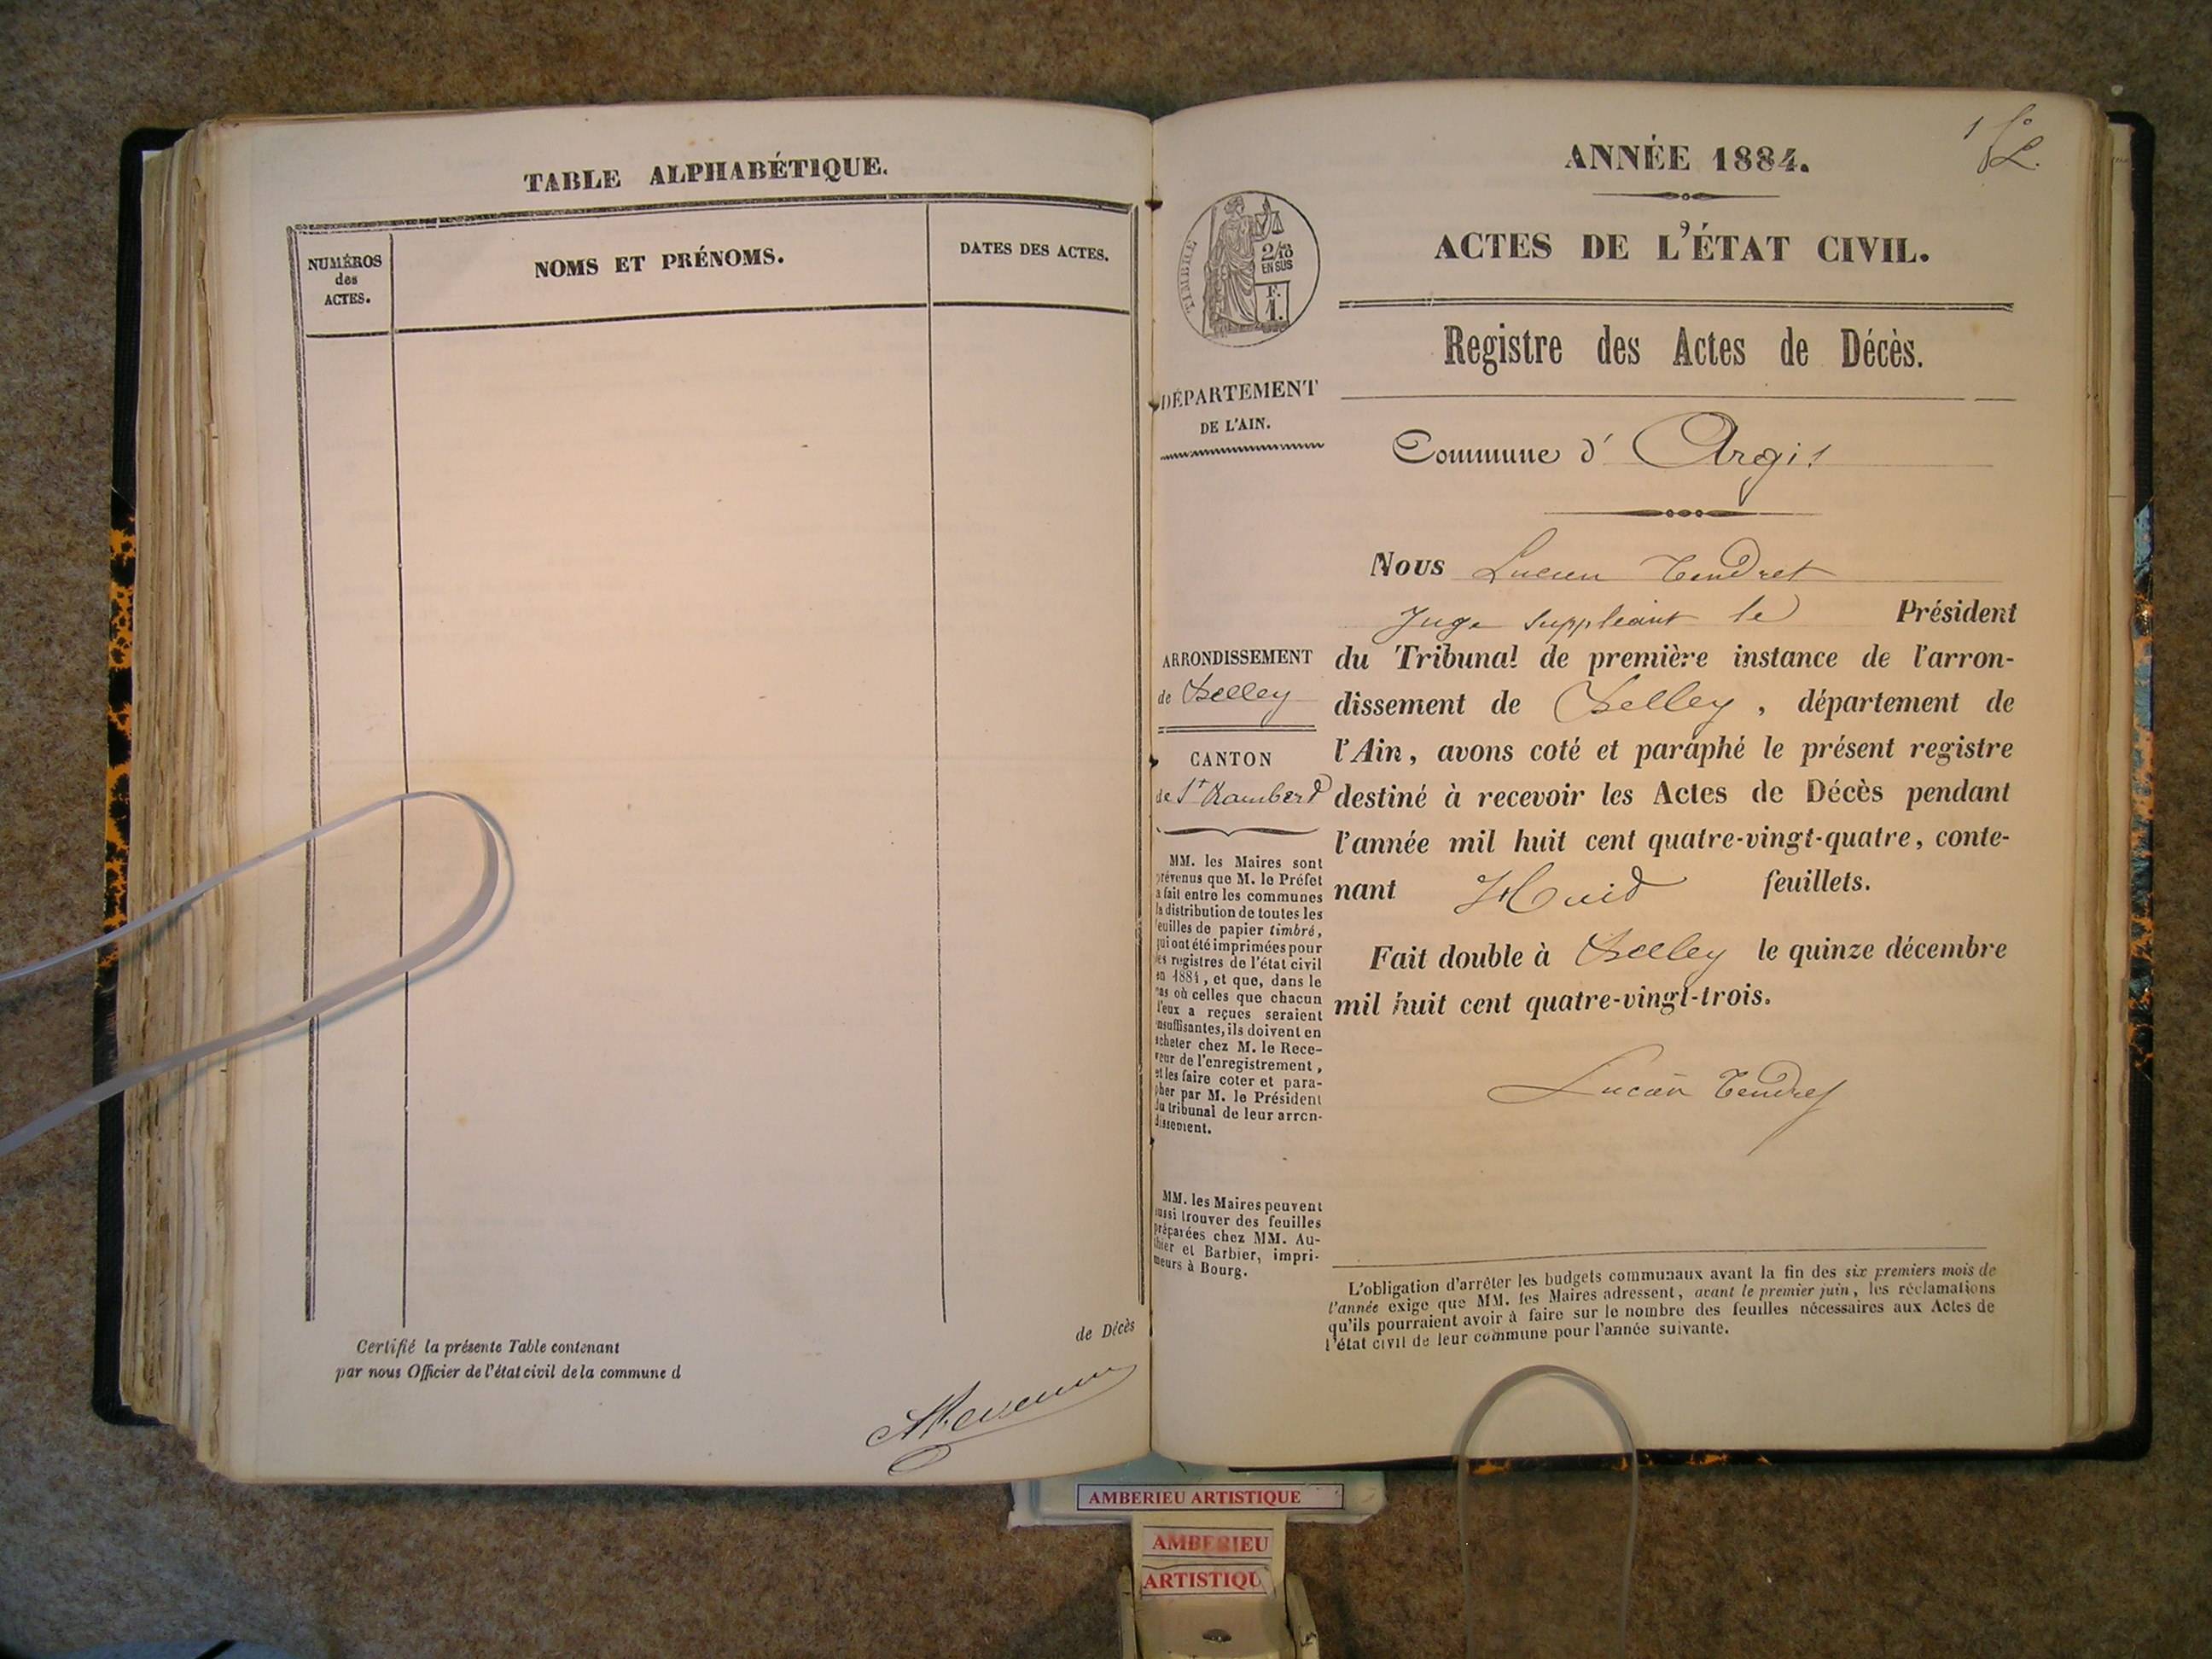 TABLE ALPHABÉTIQUE.
NUMÉROS
des
ACTES.
NOMS ET PRÉNOMS.
DATES DES ACTES.
Certifié la présente Table contenant
de Décès
par nous Officier de l'état civil de la commune d
1 f°
ANNÉE 1884.
ACTES DE L'ÉTAT CIVIL.
TIMBRE
2/10
EN SUS
F.
1.
Registre des Actes de Décès.
DÉPARTEMENT
DE L'AIN.
Commune d' Argis
Nous Lucien Tendret
Juge suppléant le Président
du Tribunal de première instance de l'arron-
dissement de Belley, département de
l'Ain, avons coté et paraphé le présent registre
destiné à recevoir les Actes de Décès pendant
l'année mil huit cent quatre-vingt-quatre, conte-
nant Huit feuillets.
Fait double à Belley le quinze décembre
mil huit cent quatre-vingt-trois.
Lucien Tendret
ARRONDISSEMENT
de Belley
CANTON
de St Rambert
MM. les Maires sont
prévenus que M. le Préfet
a fait entre les communes
la distribution de toutes les
feuilles de papier timbré,
qui ont été imprimées pour
les registres de l'état civil
en 1884, et que, dans le
cas où celles que chacun
d'eux a reçues seraient
insuffisantes, ils doivent en
acheter chez M. le Rece-
veur de l'enregistrement,
et les faire coter et para-
pher par M. le Président
du tribunal de leur arron-
dissement.
MM. les Maires peuvent
aussi trouver des feuilles
préparées chez MM. Au-
thier et Barbier, impri-
meurs à Bourg.
L'obligation d'arrêter les budgets communaux avant la fin des six premiers mois de
l'année exige que MM. les Maires adressent, avant le premier juin, les réclamations
qu'ils pourraient avoir à faire sur le nombre des feuilles nécessaires aux Actes de
l'état civil de leur commune pour l'année suivante.
AMBERIEU ARTISTIQUE
AMBERIEU
ARTISTIQU